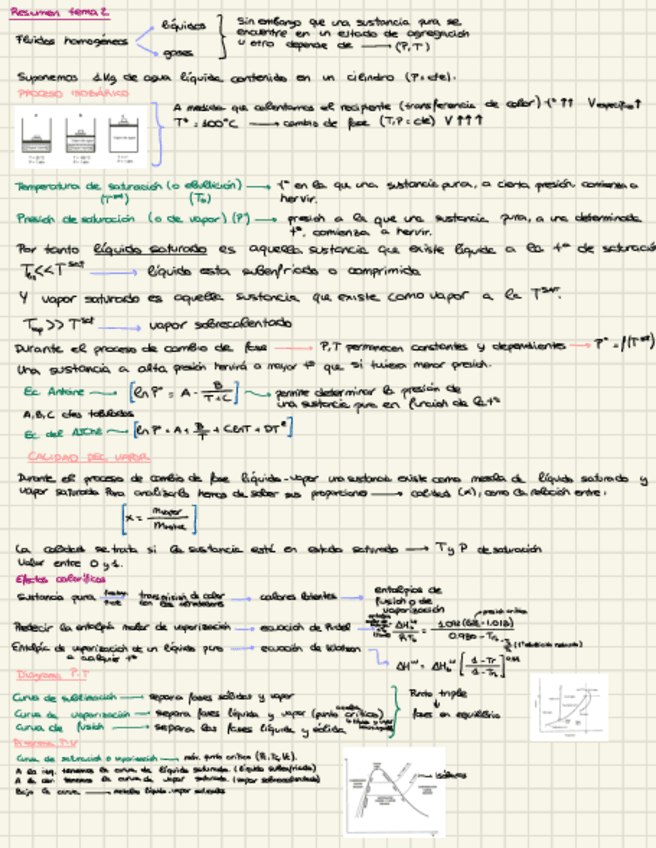 Resumen tema 2
Fluidos homogéneos
líquidos
gases
Sin embargo que una sustancia pura se
encuentre en un estado de agregación
u otro depende de (P,T)
Suponemos 1Kg de agua líquida contenido en un cilindro (P=cte).
PROCESO ISOBÁRICO
A medida que calentamos el recipiente (transferencia de calor) tª ↑↑ Vespecífico ↑
Tª = 100ºC → cambio de fase (T,P = cte) V ↑↑↑
Temperatura de saturación (o ebullición) → tª en la que una sustancia pura, a cierta presión, comienza a
(Tsat) (Tb) hervir.
Presión de saturación (o de vapor) (P*) → presión a la que una sustancia pura, a una determinada
tª, comienza a hervir.
Por tanto líquido saturado es aquella sustancia que existe líquida a la tª de saturación
<< Tsat → líquido esta subenfriado o comprimido
Y vapor saturado es aquella sustancia que existe como vapor a la Tsat.
>> Tsat → vapor sobrecalentado
Durante el proceso de cambio de fase → P,T permanecen constantes y dependientes → P* = f(Tsat)
Una sustancia a alta presión hervirá a mayor tª que si tuviera menor presión.
Ec. Antoine → [ln P* = A - B/(T+C)] → permite determinar la presión de
una sustancia pura en función de la tª
A,B,C ctes tabuladas
Ec. del → [ln P* = A + B/T + C lnT + DT^E]
CALIDAD DEL VAPOR
Durante el proceso de cambio de fase líquido-vapor una sustancia existe como mezcla de líquido saturado y
vapor saturado. Para analizarla hemos de saber sus proporciones → calidad (x), como la relación entre:
[x = mvapor/]
La calidad se trata si la sustancia está en estado saturado → T y P de saturación
Valor entre 0 y 1.
Efectos caloríficos
Sustancia pura transmisión de calor
con los alrededores → calores latentes → entalpías de
fusión o de
vaporización
Predecir la entalpía molar de vaporización → ecuación de Riedel → = 1.092 (ln - 1.013) / 0.930 - Tr
presión crítica
Entalpía de vaporización de un líquido puro → ecuación de Watson
a cualquier tª
Diagrama P-T
Curva de sublimación → separa fases sólidas y vapor
Curva de vaporización → separa fases líquida y vapor (punto crítico)
Curva de fusión → separa las fases líquida y sólida
Punto triple
↓
fases en equilibrio
Diagrama P-V
Curva de saturación o vaporización → máx. punto crítico (Pc,Tc,Vc).
A la izq. tenemos la curva de líquido saturado (líquido subenfriado)
A la der. tenemos la curva de vapor saturado (vapor sobrecalentado)
Bajo la curva → mezcla líquido-vapor saturado
Isóbaras